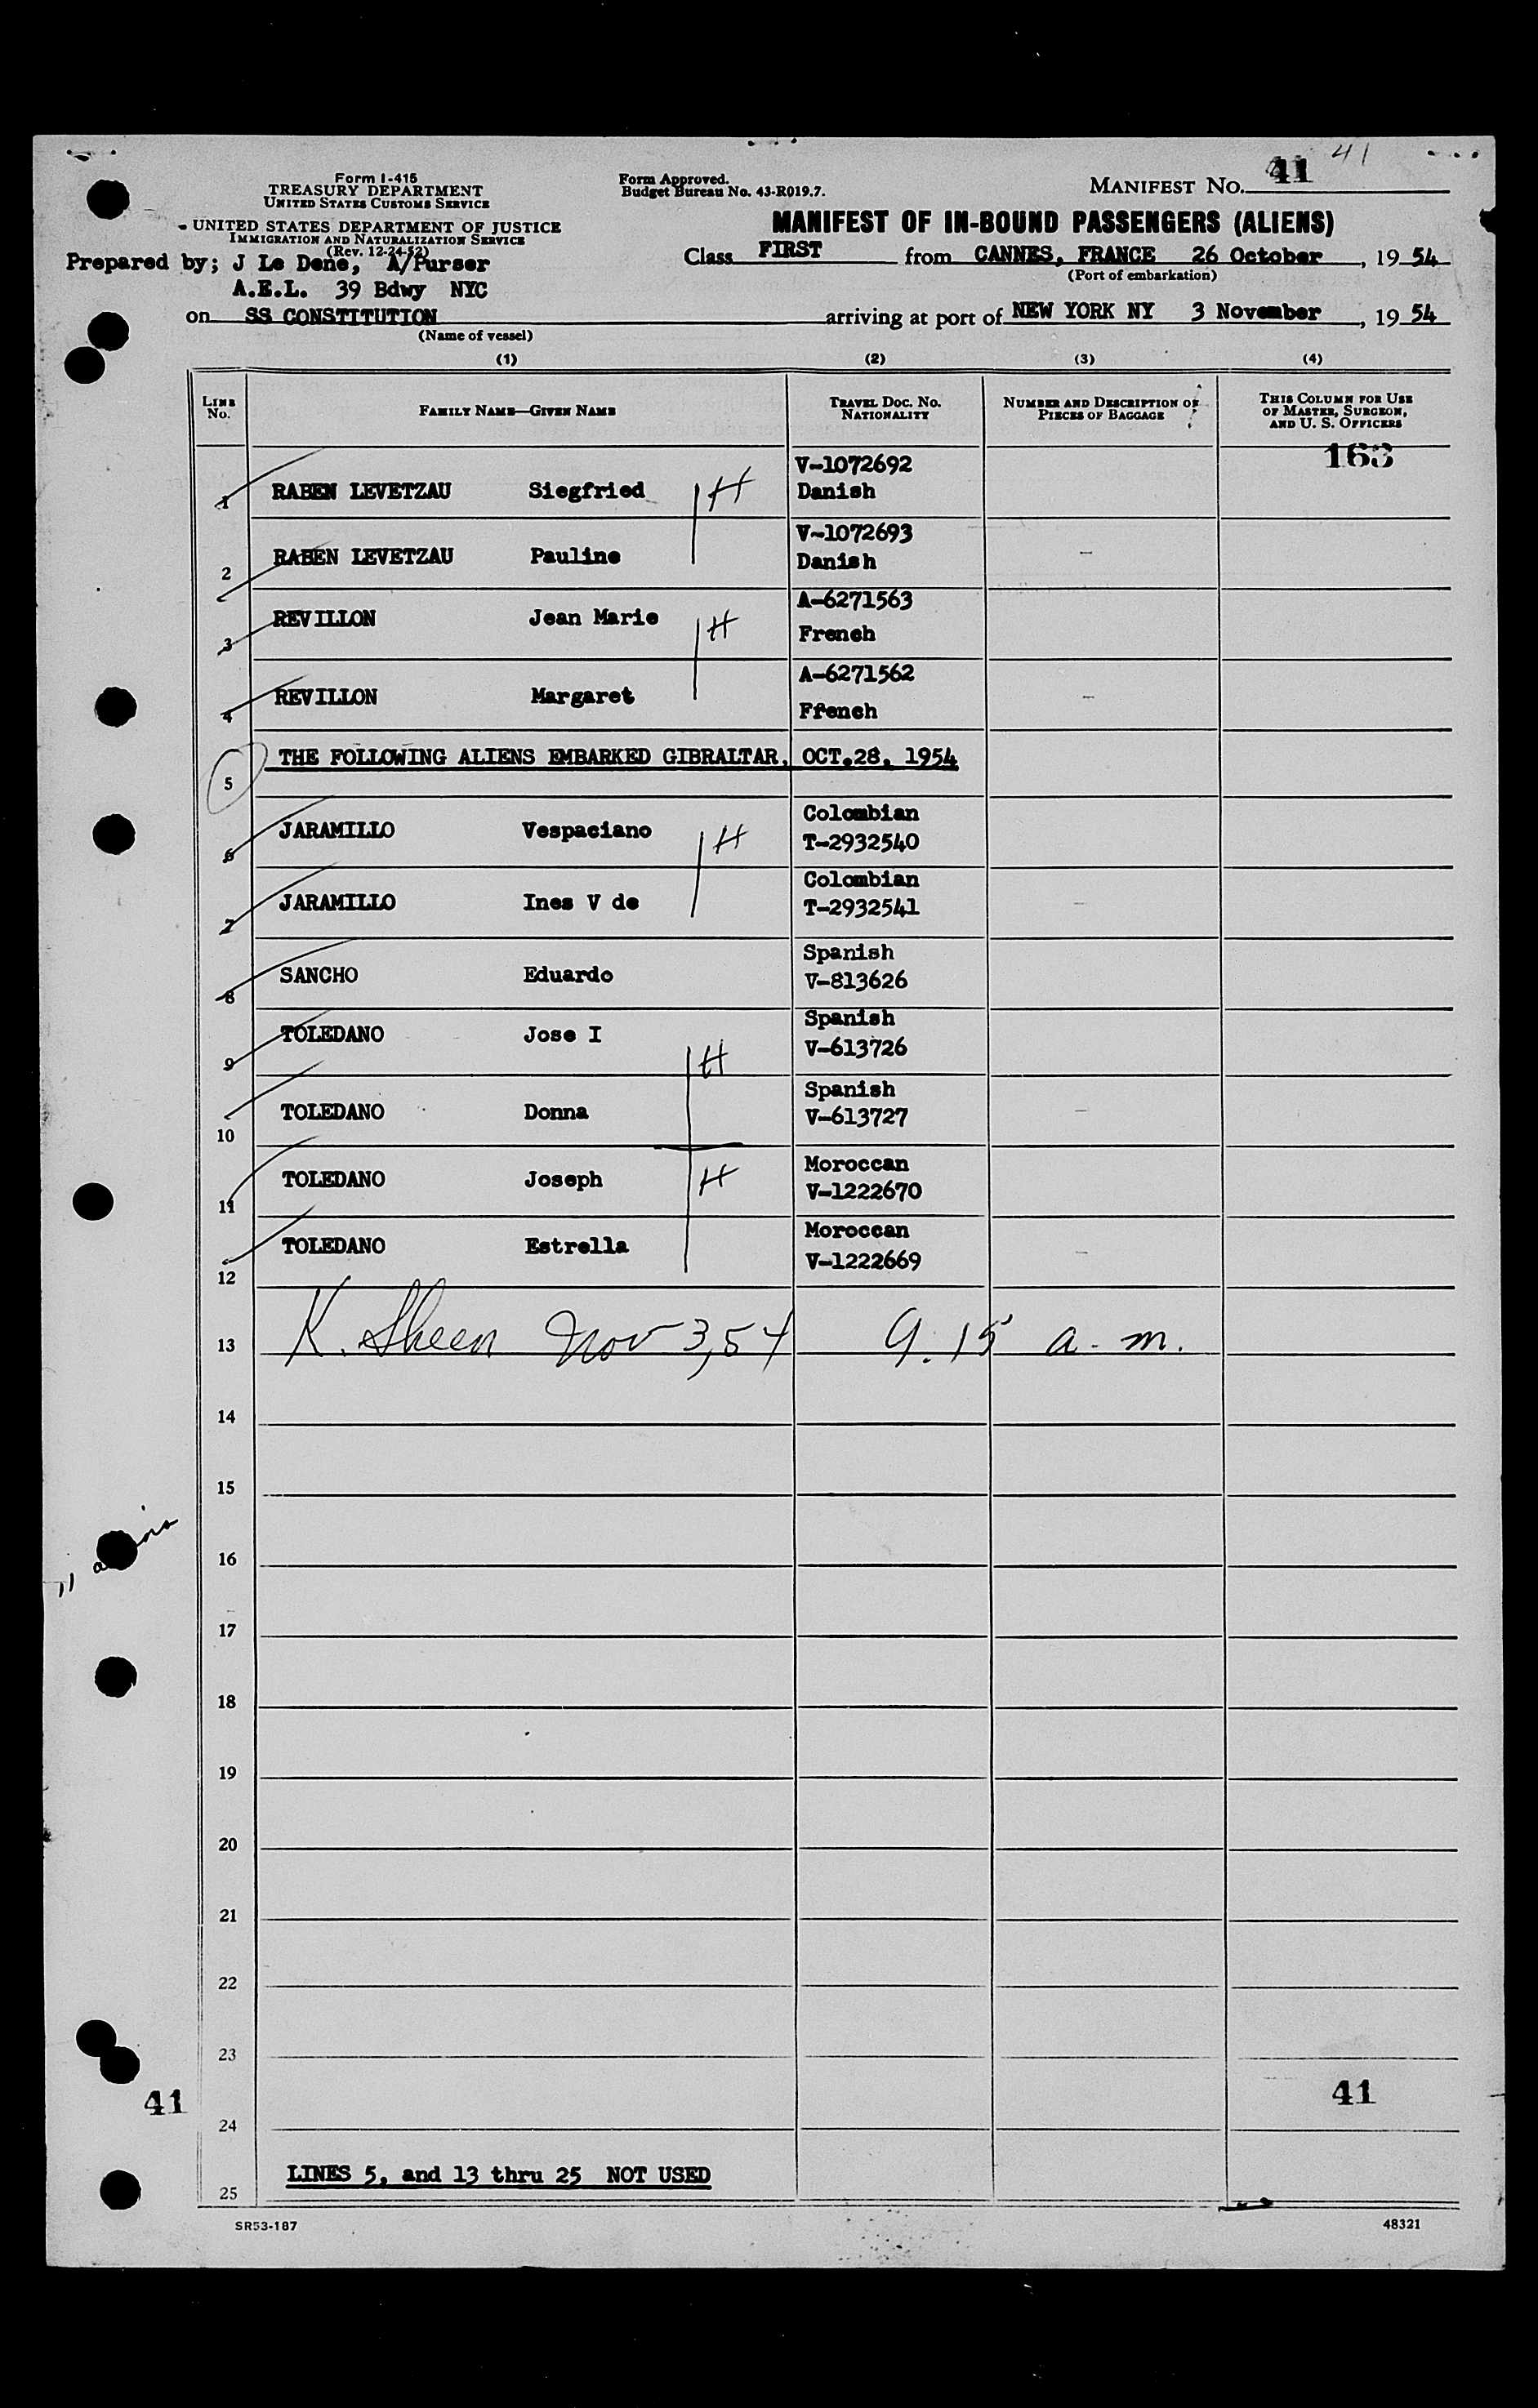 41
Form I-415
TREASURY DEPARTMENT
UNITED STATES CUSTOMS SERVICE
UNITED STATES DEPARTMENT OF JUSTICE
IMMIGRATION AND NATURALIZATION SERVICE
(Rev. 12-24-52)
Form Approved.
Budget Bureau No. 43-R019.7.
MANIFEST No. 41
MANIFEST OF IN-BOUND PASSENGERS (ALIENS)
Prepared by; J Le Dene, A/Purser
A.E.L. 39 Bdwy NYC
Class FIRST from CANNES, FRANCE 26 October, 1954
(Port of embarkation)
on SS CONSTITUTION arriving at port of NEW YORK NY 3 November, 1954
(Name of vessel)
(1) (2) (3) (4)
LINE No. FAMILY NAME—GIVEN NAME TRAVEL DOC. NO. NATIONALITY NUMBER AND DESCRIPTION OF PIECES OF BAGGAGE THIS COLUMN FOR USE OF MASTER, SURGEON, AND U. S. OFFICERS
163
1 RABEN LEVETZAU Siegfried H V-1072692 Danish
2 RABEN LEVETZAU Pauline V-1072693 Danish
3 REVILLON Jean Marie H A-6271563 French
4 REVILLON Margaret A-6271562 Ffench
5 THE FOLLOWING ALIENS EMBARKED GIBRALTAR, OCT.28, 1954
6 JARAMILLO Vespaciano H Colombian T-2932540
7 JARAMILLO Ines V de Colombian T-2932541
8 SANCHO Eduardo Spanish V-813626
9 TOLEDANO Jose I H Spanish V-613726
10 TOLEDANO Donna Spanish V-613727
11 TOLEDANO Joseph H Moroccan V-1222670
12 TOLEDANO Estrella Moroccan V-1222669
13 K. Sheen Nov 3, 54 9.15 a.m.
14
15
16
11
17
18
19
20
21
22
23
41 41
24
25 LINES 5, and 13 thru 25 NOT USED
SR53-187 48321